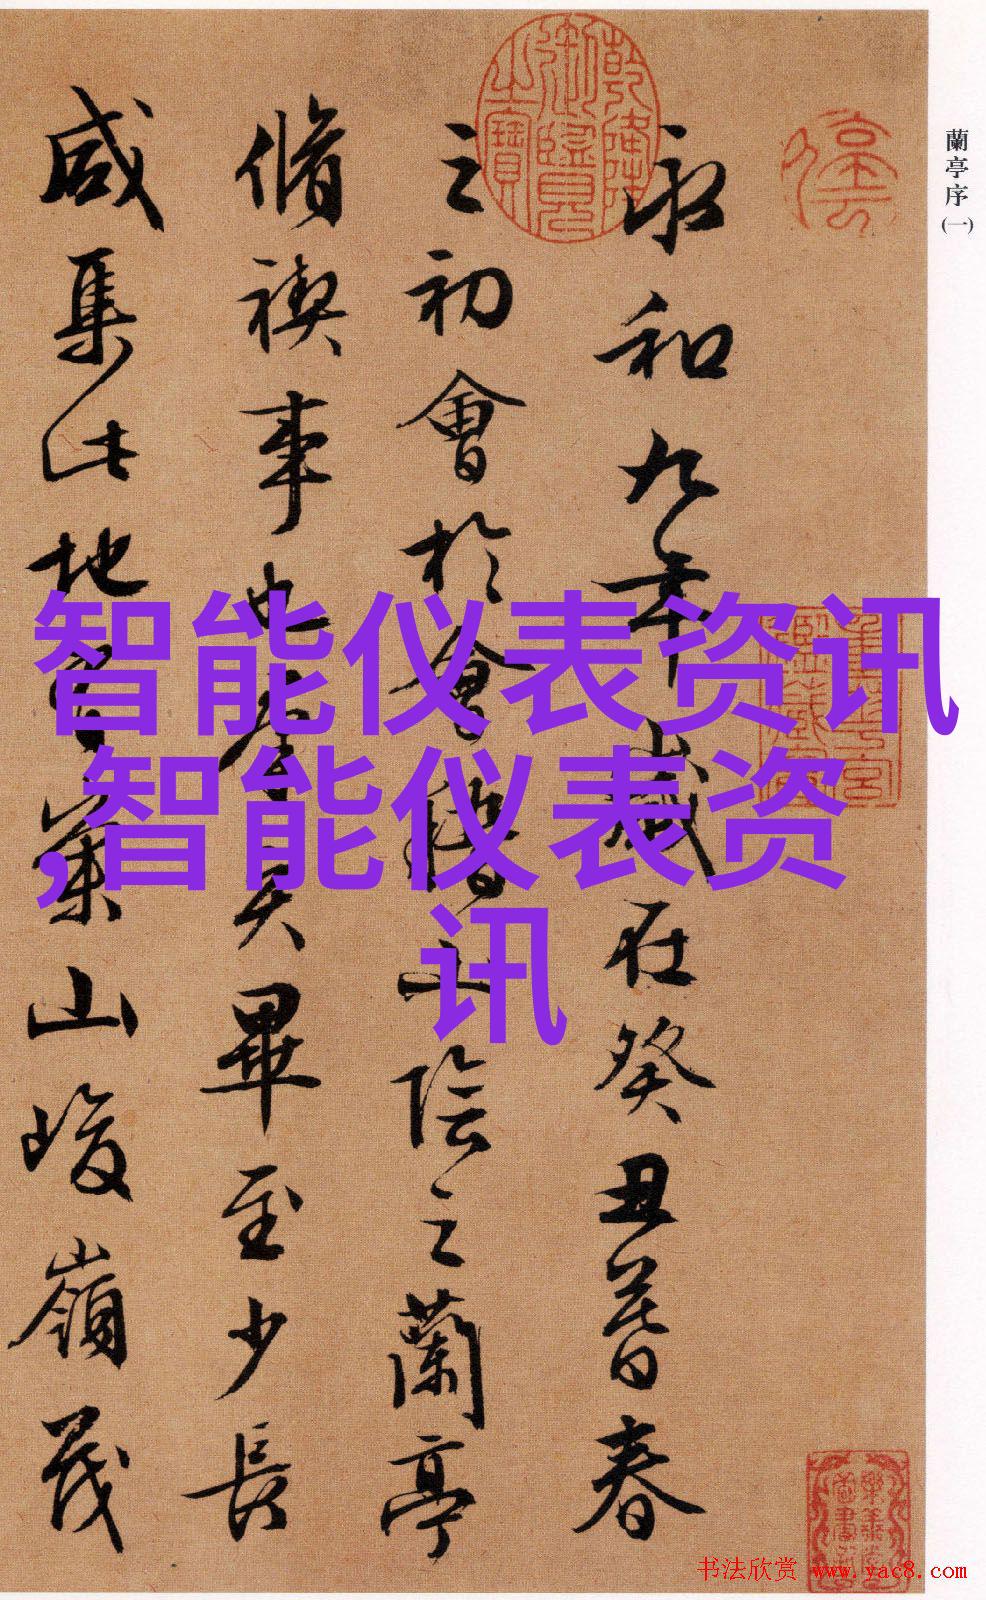 蘭亭序(一)
永和九年歲在癸丑暮春
之初會於會稽山陰之蘭亭
脩禊事也羣賢畢至少長
咸集此地有崇山峻嶺茂
乾隆御覽之寶
智能仪表资讯
,智能仪表资
讯
书法欣赏 www.yac8.com